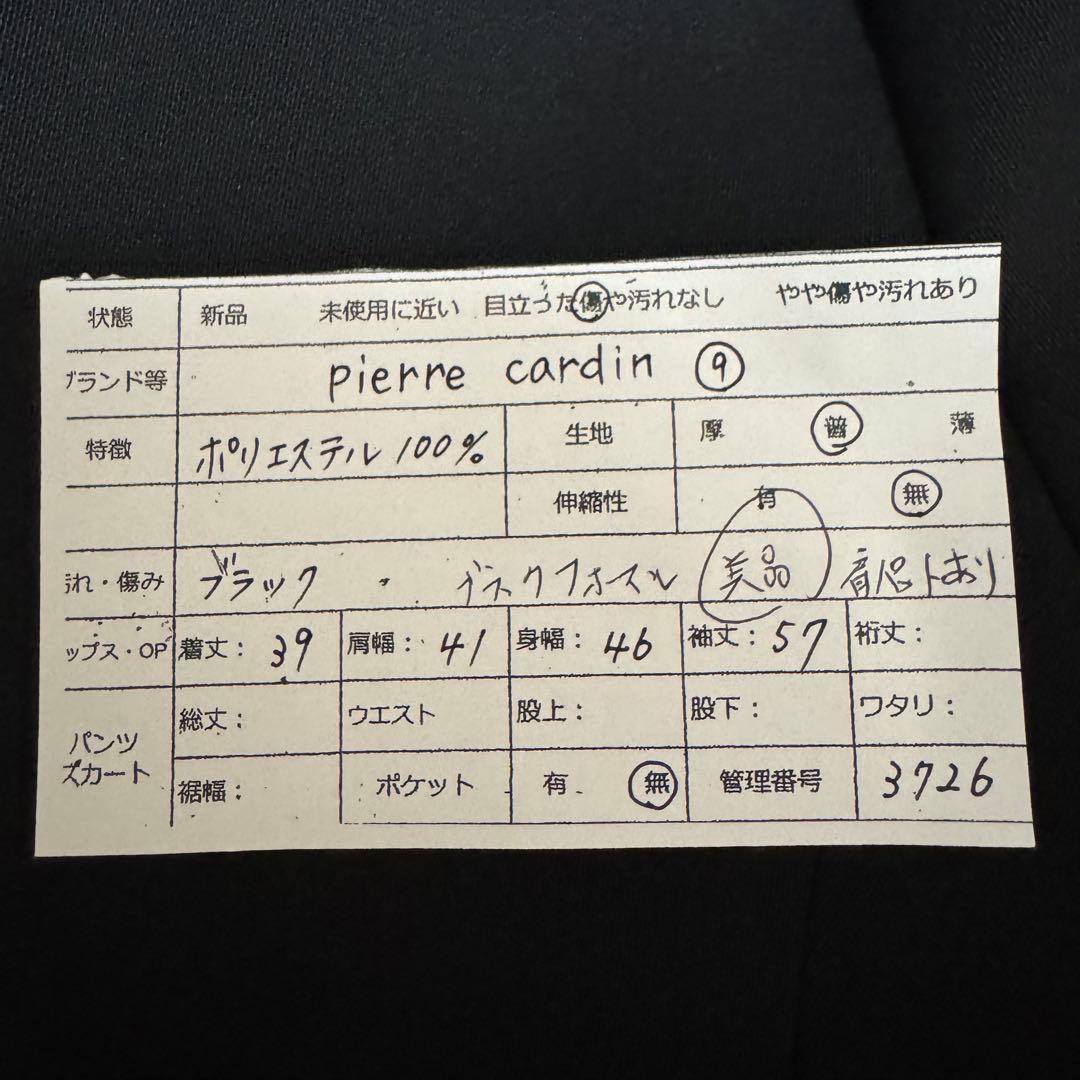 状態 新品 未使用に近い 目立った傷や汚れなし やや傷や汚れあり
ブランド等 pierre cardin ⑨
特徴 ポリエステル100% 生地 厚 普 薄
伸縮性 有 無
汚れ・傷み ブラック 美品 肩パットあり
ップス・OP 着丈: 39 肩幅: 41 身幅: 46 袖丈: 57 裄丈:
パンツ
スカート
総丈: ウエスト 股上: 股下: ワタリ:
裾幅: ポケット 有 無 管理番号 3726